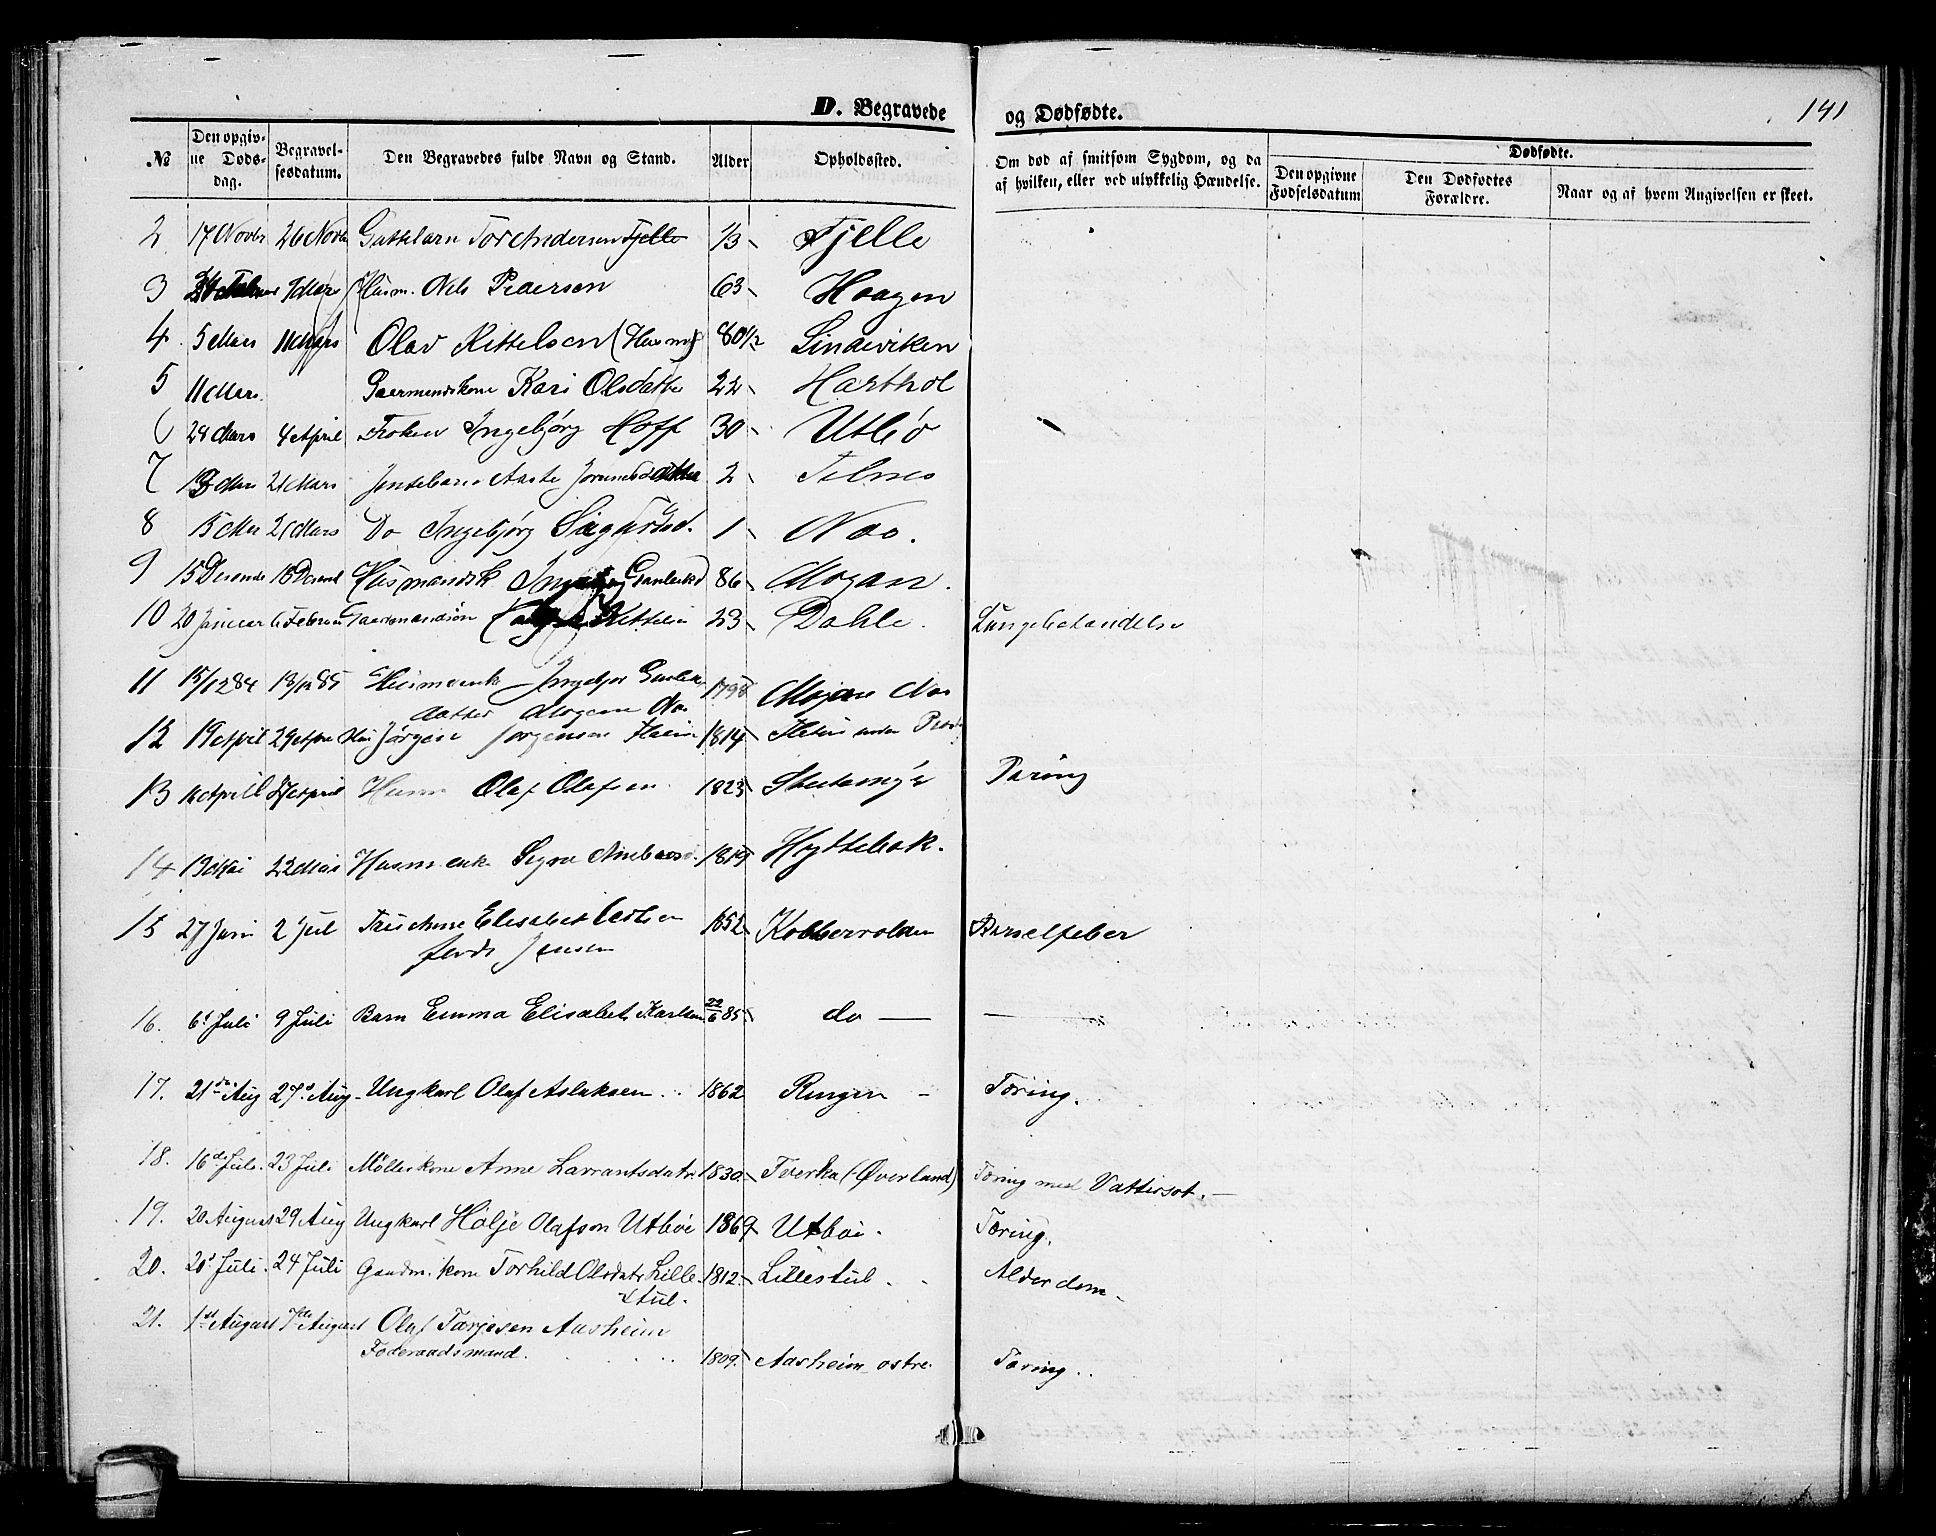 D. Begravede og Dødfødte.
141
№ Den opgivne Dødsdag. Begravelsesdatum. Den Begravedes fulde Navn og Stand. Alder Opholdssted. Om død af smitsom Sygdom, og da af hvilken, eller ved ulykkelig Hændelse. Dødfødte.
Den opgivne Fødselsdatum Den Dødfødtes Forældre. Naar og af hvem Angivelsen er skeet.
2 17 Novbr 26 Novb Guttebarn Tor Andersen Fjelle 1/3 Fjelle
3 Husm. Nels Pedersen 63 Haagen
4 5 Mars 11 Mars Olav Kittelsen (Husm) 80 1/2 Lindeviken
5 11 Mars Gaarmandskone Kari Olsdatte 22 Harthol
6 28 Mars 4 April Frøken Ingebjørg Hoff 30 Utbø
7 13 Mars 21 Mars Jentebarn Aaste 2
8 15 Mar 21 Mars Do Ingebjørg 1 Nao.
9 15 Decembe 18 Decembe Husmandsk 86 Mogan.
10 20 Januar 6 Februar Gaardmandsøn Kittelsen 23 Dahle. Lungebetændelse
11 15/12 84 Husmank 1798 Mogan Nao
datter Mogan Nao
12 19 April 29 April Jørgen Jørgensen 1814
13 April 27 April Husm Olaf Olafsen 1823 Tæring
14 13 Mai 22 Mai Husmank Signe 1819 Hyttebak.
15 27 Juni 2 Juli Elisabet Carlsen 1852 Kobbervolden Barselfeber
født Jensen
16. 6t Juli 9 Juli Barn Emma Elisabet Karlsen 22/6 85 do — —
17. 21de Aug 27d Aug Ungkarl Olaf Aslaksen 1862 Ringen Tæring.
18. 16de Juli. 23 Juli Møllerkone Anne Lavrantsdatr 1830 Tverka (Øverland) Tæring med Vattersot.—
19. 20 August 29 Aug Ungkarl Hølje Olafson Utbøi 1869 Utbøi. Tæring.
20. 20d Juli. 24 Juli Gaardm. kone Torhild Olsdatr Lille- 1812. Lillestul. Alderdom.
stul.
21. 1st August 7de August Olaf Tarjesen Aasheim
Føderaadsmand. 1809. Aasheim østre. Tæring.